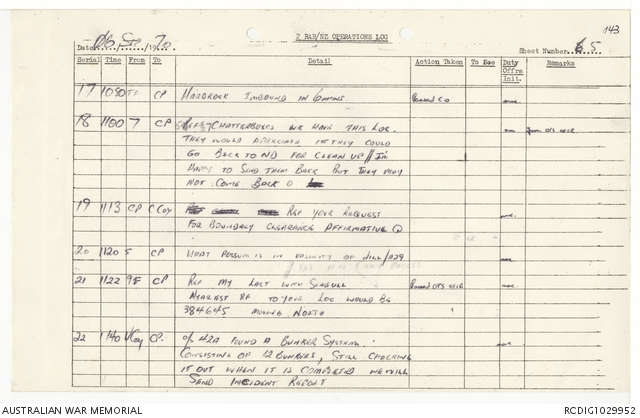 143
2 RAR/NZ OPERATIONS LOG
Date 06 19 70 Sheet Number 5
Serial Time From To Detail Action Taken To Doc Duty Offrs Init. Remarks
17 CP HARDROCK INBOUND IN
18 1100 7 CP CHATTERBOXES WE HAVE THIS LOC.
THEY WOULD APPRECIATE IT IF THEY COULD
GO BACK TO ND FOR CLEAN UP // I'M
HAPPY TO SEND THEM BACK BUT THEY MAY
NOT COME BACK
19 1113 CP C Coy REF YOUR REQUEST
FOR BOUNDARY CLEARANCE AFFIRMATIVE
20 1120 5 CP WHAT PERSON IS IN
21 1122 98 CP REF MY LAST WITH SEAGULL
NEAREST RF TO YOUR LOC WOULD BE
384645 MOVING NORTH
22 1140 V Coy CP. c/s 42A FOUND A BUNKER SYSTEM.
CONSISTING OF 12 BUNKERS, STILL CHECKING
IT OUT WHEN IT IS COMPLETED WE WILL
SEND INCIDENT REPORT
AUSTRALIAN WAR MEMORIAL RCDIG1029952